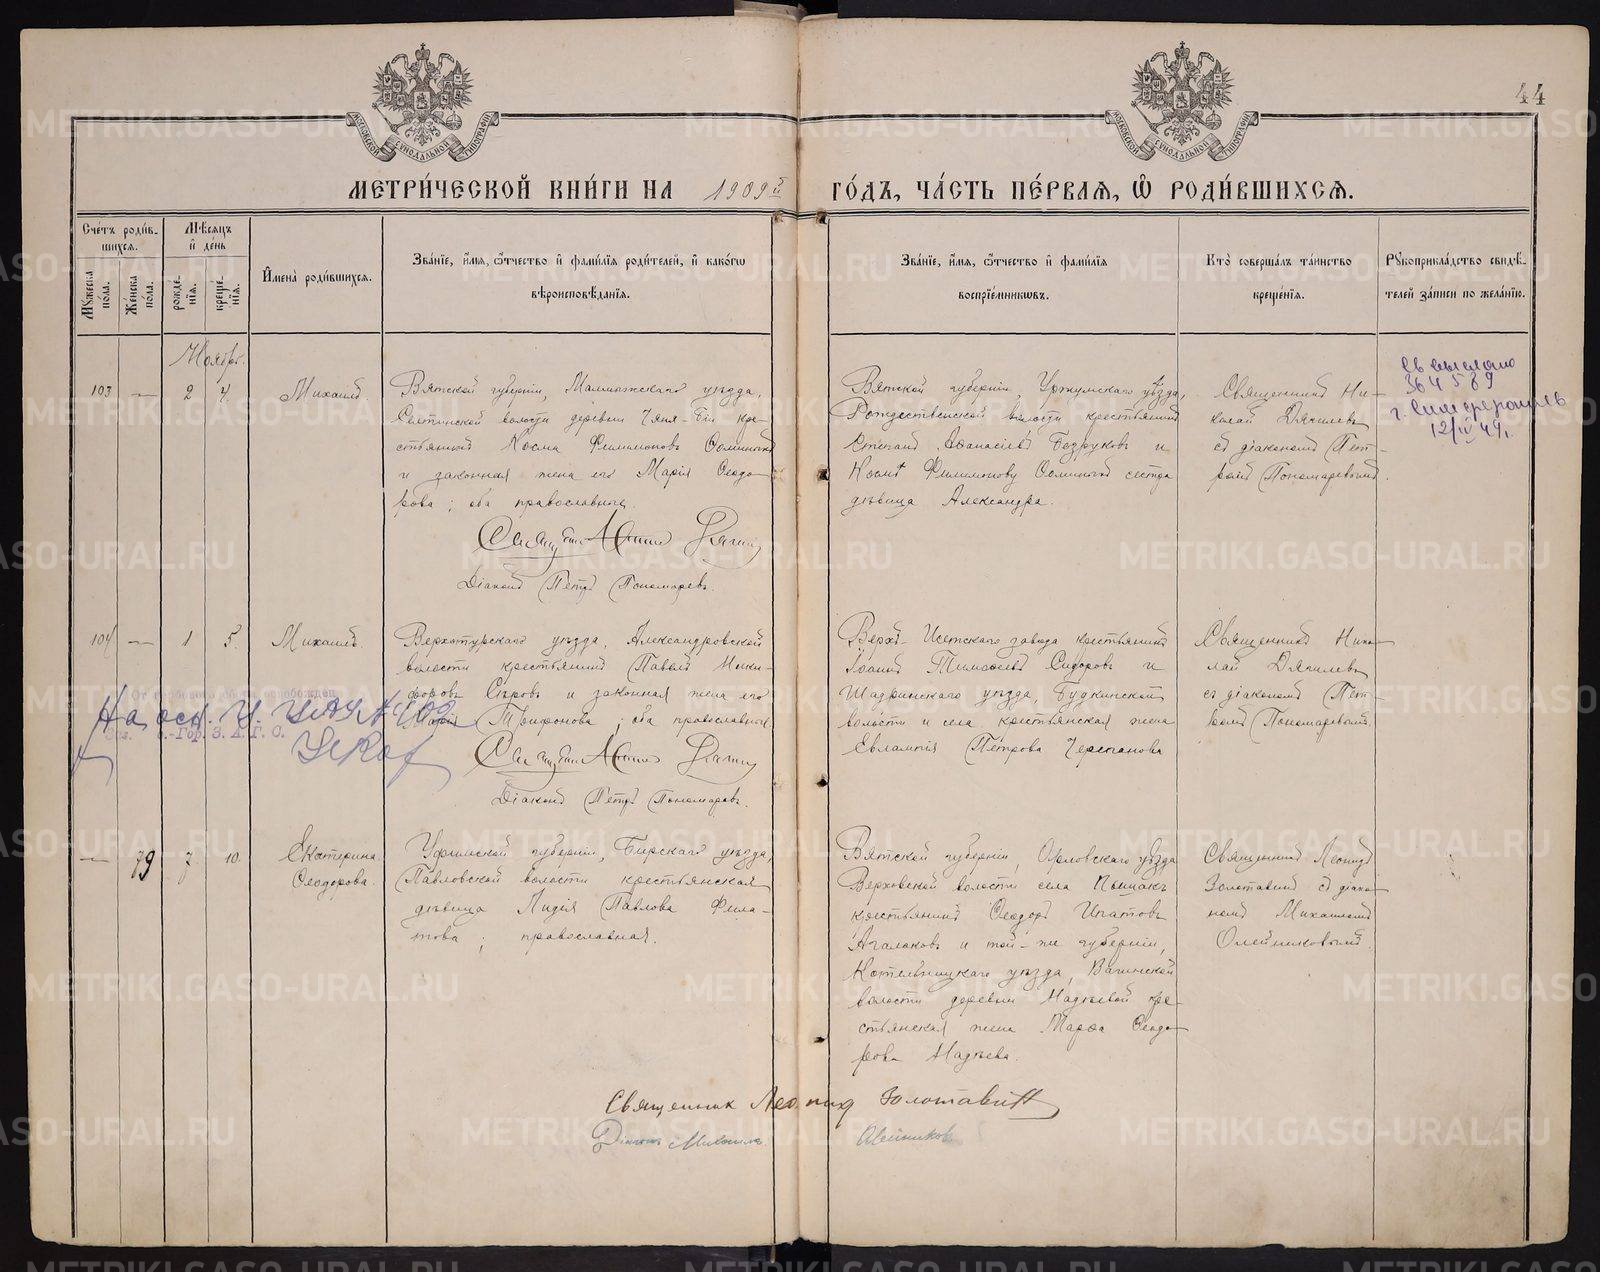 44
МОСКОВСКОЙ СѴНОДАЛЬНОЙ ТИПОГРАФІИ
МОСКОВСКОЙ СѴНОДАЛЬНОЙ ТИПОГРАФІИ
МЕТРИ́ЧЕСКОЙ КНИ́ГИ НА 1909 ГО́ДЪ, ЧА́СТЬ ПЕ́РВАЯ, Ѡ РОДИ́ВШИХСЯ.
Сче́тъ роди́вшихся.
Му́жеска по́ла.
Же́нска по́ла.
Мѣ́сяцъ и де́нь
рожде́нія.
креще́нія.
Имена̀ роди́вшихся.
Зва́ніе, и́мя, ѻ́тчество и фами́лія роди́телей, и како́гѡ
вѣроисповѣ́данія.
Зва́ніе, и́мя, ѻ́тчество и фами́лія
воспріе́мникѡвъ.
Кто̀ соверша́лъ та́инство
креще́нія.
Рꙋкоприкла́дство свидѣ́-
телей за́писи по жела́нію.
Ноябрь.
103 — 2 4. Михаилъ.
Вятской губерніи, Малмыжскаго уѣзда,
волости деревни кре-
стьянинъ Косма Филимоновъ
и законная жена его Марія Ѳеодо-
рова; оба православные.
Діаконъ Петръ Пономаревъ.
Вятской губерніи Уржумскаго уѣзда,
Рождественской волости крестьянинъ
Степанъ Аѳанасіевъ Безруковъ и
Филимонову сестра
дѣвица Александра.
Священникъ Ни-
колай Дягилевъ
съ діакономъ Пет-
ромъ Пономаревымъ.
364589
г. Симферополь
12/IV 49г.
104 — 1 5. Михаилъ.
Верхотурскаго уѣзда, Александровской
волости крестьянинъ Павелъ Ники-
форовъ Сѣровъ и законная жена его
Марія Трифонова; оба православные
На осн.
З. А. Г. С.
Діаконъ Петръ Пономаревъ.
Верхъ-Исетскаго завода крестьянинъ
Іоаннъ Тимоѳеевъ Сидоровъ и
Шадринскаго уѣзда, Буткинской
волости и села, крестьянская жена
Евлампія Петрова Черепанова
Священникъ Нико-
лай Дягилевъ
съ діакономъ Пет-
ромъ Пономаревымъ.
— 79 7. 10. Екатерина
Ѳеодорова.
Уфимской губерніи, Бирскаго уѣзда,
Павловской волости крестьянская
дѣвица Лидія Павлова Фила-
това; православная.
Вятской губерніи, Орловскаго уѣзда
Верховской волости села Пищалъ
крестьянинъ Ѳеодоръ Ипатовъ
Агалаковъ и той-же губерніи,
Котельническаго уѣзда, Вагинской
волости деревни кре-
стьянская жена Марѳа Ѳеодо-
рова
Священникъ Леонидъ
Золотавинъ съ діако-
номъ Михаиломъ
Олейниковымъ.
Священник Леонид Золотавин
Діаконъ Михаилъ Олейников
METRIKI.GASO-URAL.RU